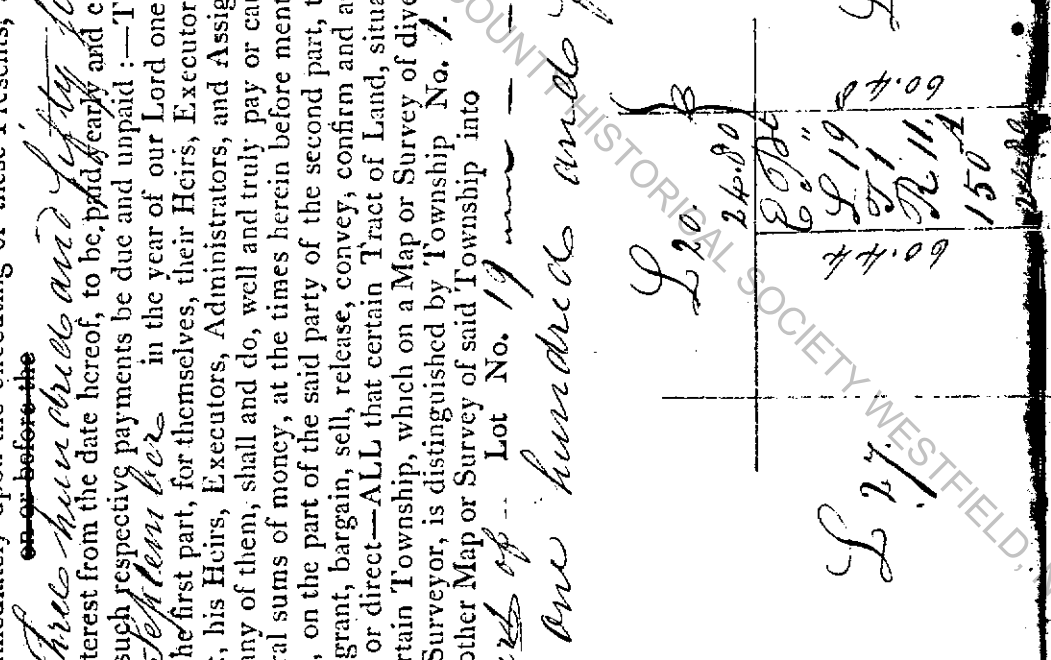 upon the ensealing of these Presents,
on or before the
Three hundred and fifty
terest from the date hereof, to be paid yearly and
such respective payments be due and unpaid :—T
September in the year of our Lord one
he first part, for themselves, their Heirs, Executor
, his Heirs, Executors, Administrators, and Assig
any of them, shall and do, well and truly pay or cau
ral sums of money, at the times herein before ment
, on the part of the said party of the second part, t
grant, bargain, sell, release, convey, confirm and a
or direct—ALL that certain Tract of Land, situa
rtain Township, which on a Map or Survey of dive
Surveyor, is distinguished by Township No. 1.
other Map or Survey of said Township into
of Lot No. 19
one hundred and
L 27.
L 20.
24.80
L 19
T 1
R 11.
150 A
60.44
60.48
24.80
COUNTY HISTORICAL SOCIETY WESTFIELD,